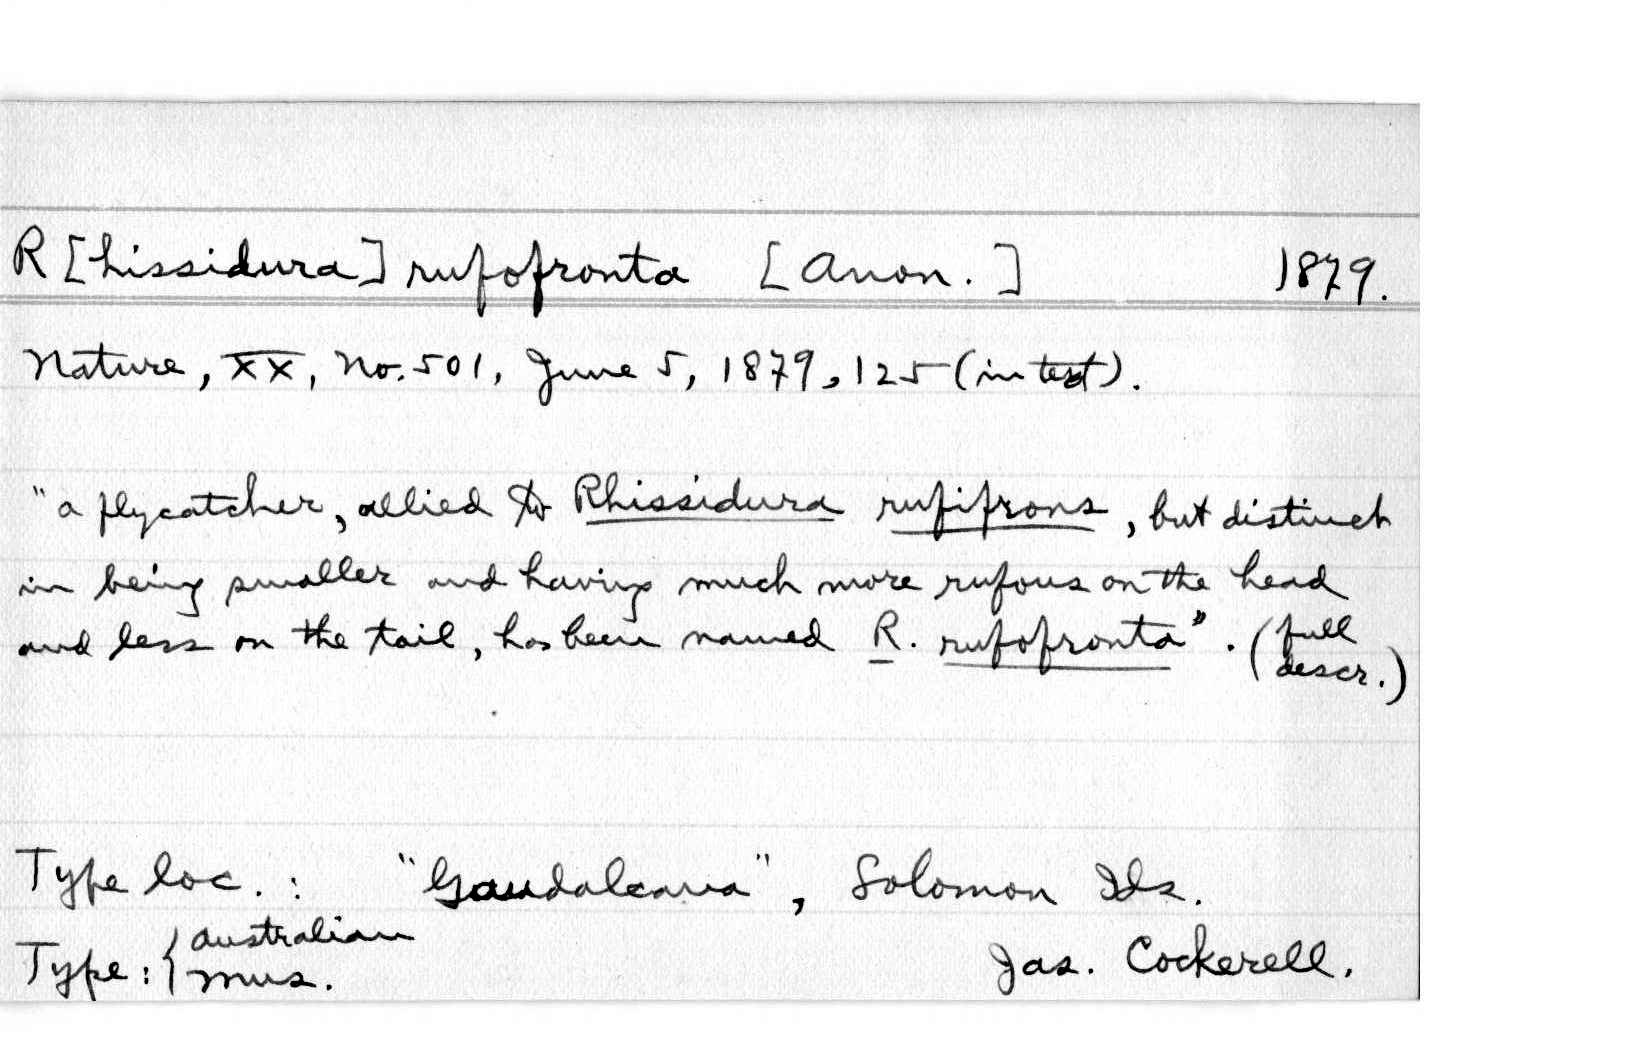 R[hissidura] rufofronta [Anon.] 1879.
Nature, XX, No. 501, June 5, 1879, 125 (in text).
"a flycatcher, allied to Rhissidura rufifrons, but distinct
in being smaller and having much more rufous on the head
and less on the tail, has been named R. rufofronta". (full
descr.)
Type loc. : "Gaudalcana", Solomon Ids.
Type: { Australian
Mus.
Jas. Cockerell.